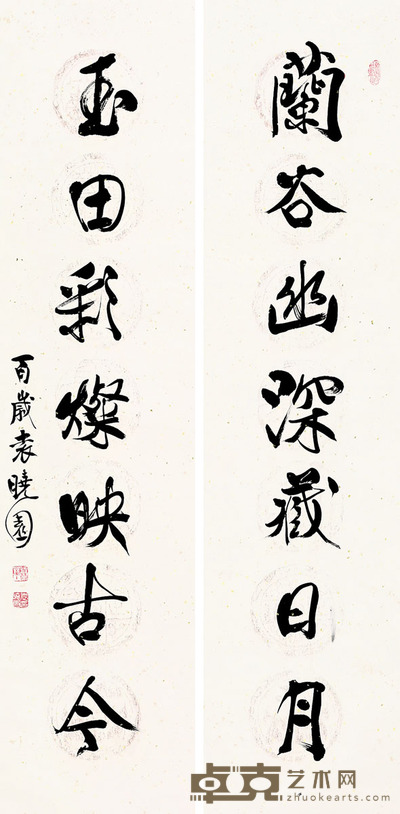 蘭谷幽深藏日月
玉田彩燦映古今
百歲袁曉園
卓克艺术网
zhuokearts.com